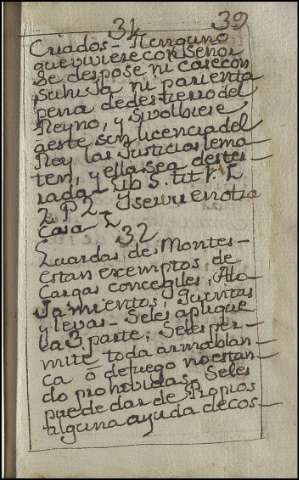 31 39
Criados - Ninguno
que viviere con señor
se despose ni case con
su hija ni parienta
pena de destierro del
Reyno, y si volbiere
a este sin licencia del
Rey las Justicias le ma-
ten, y ella sea deste-
rrada Lib 5. tit 1. L
2. P 2. y servir en otra
casa L
32
Guardas de Montes -
estan exemptos, de
Cargas concegiles, Alo-
Jamientos, Quintas
y levas - Seles aplique
la 3 parte: Seles per-
mite toda arma blan-
ca ò de fuego no estan-
do prohividas. Seles
puede dar de Propios
alguna ayuda de cos-